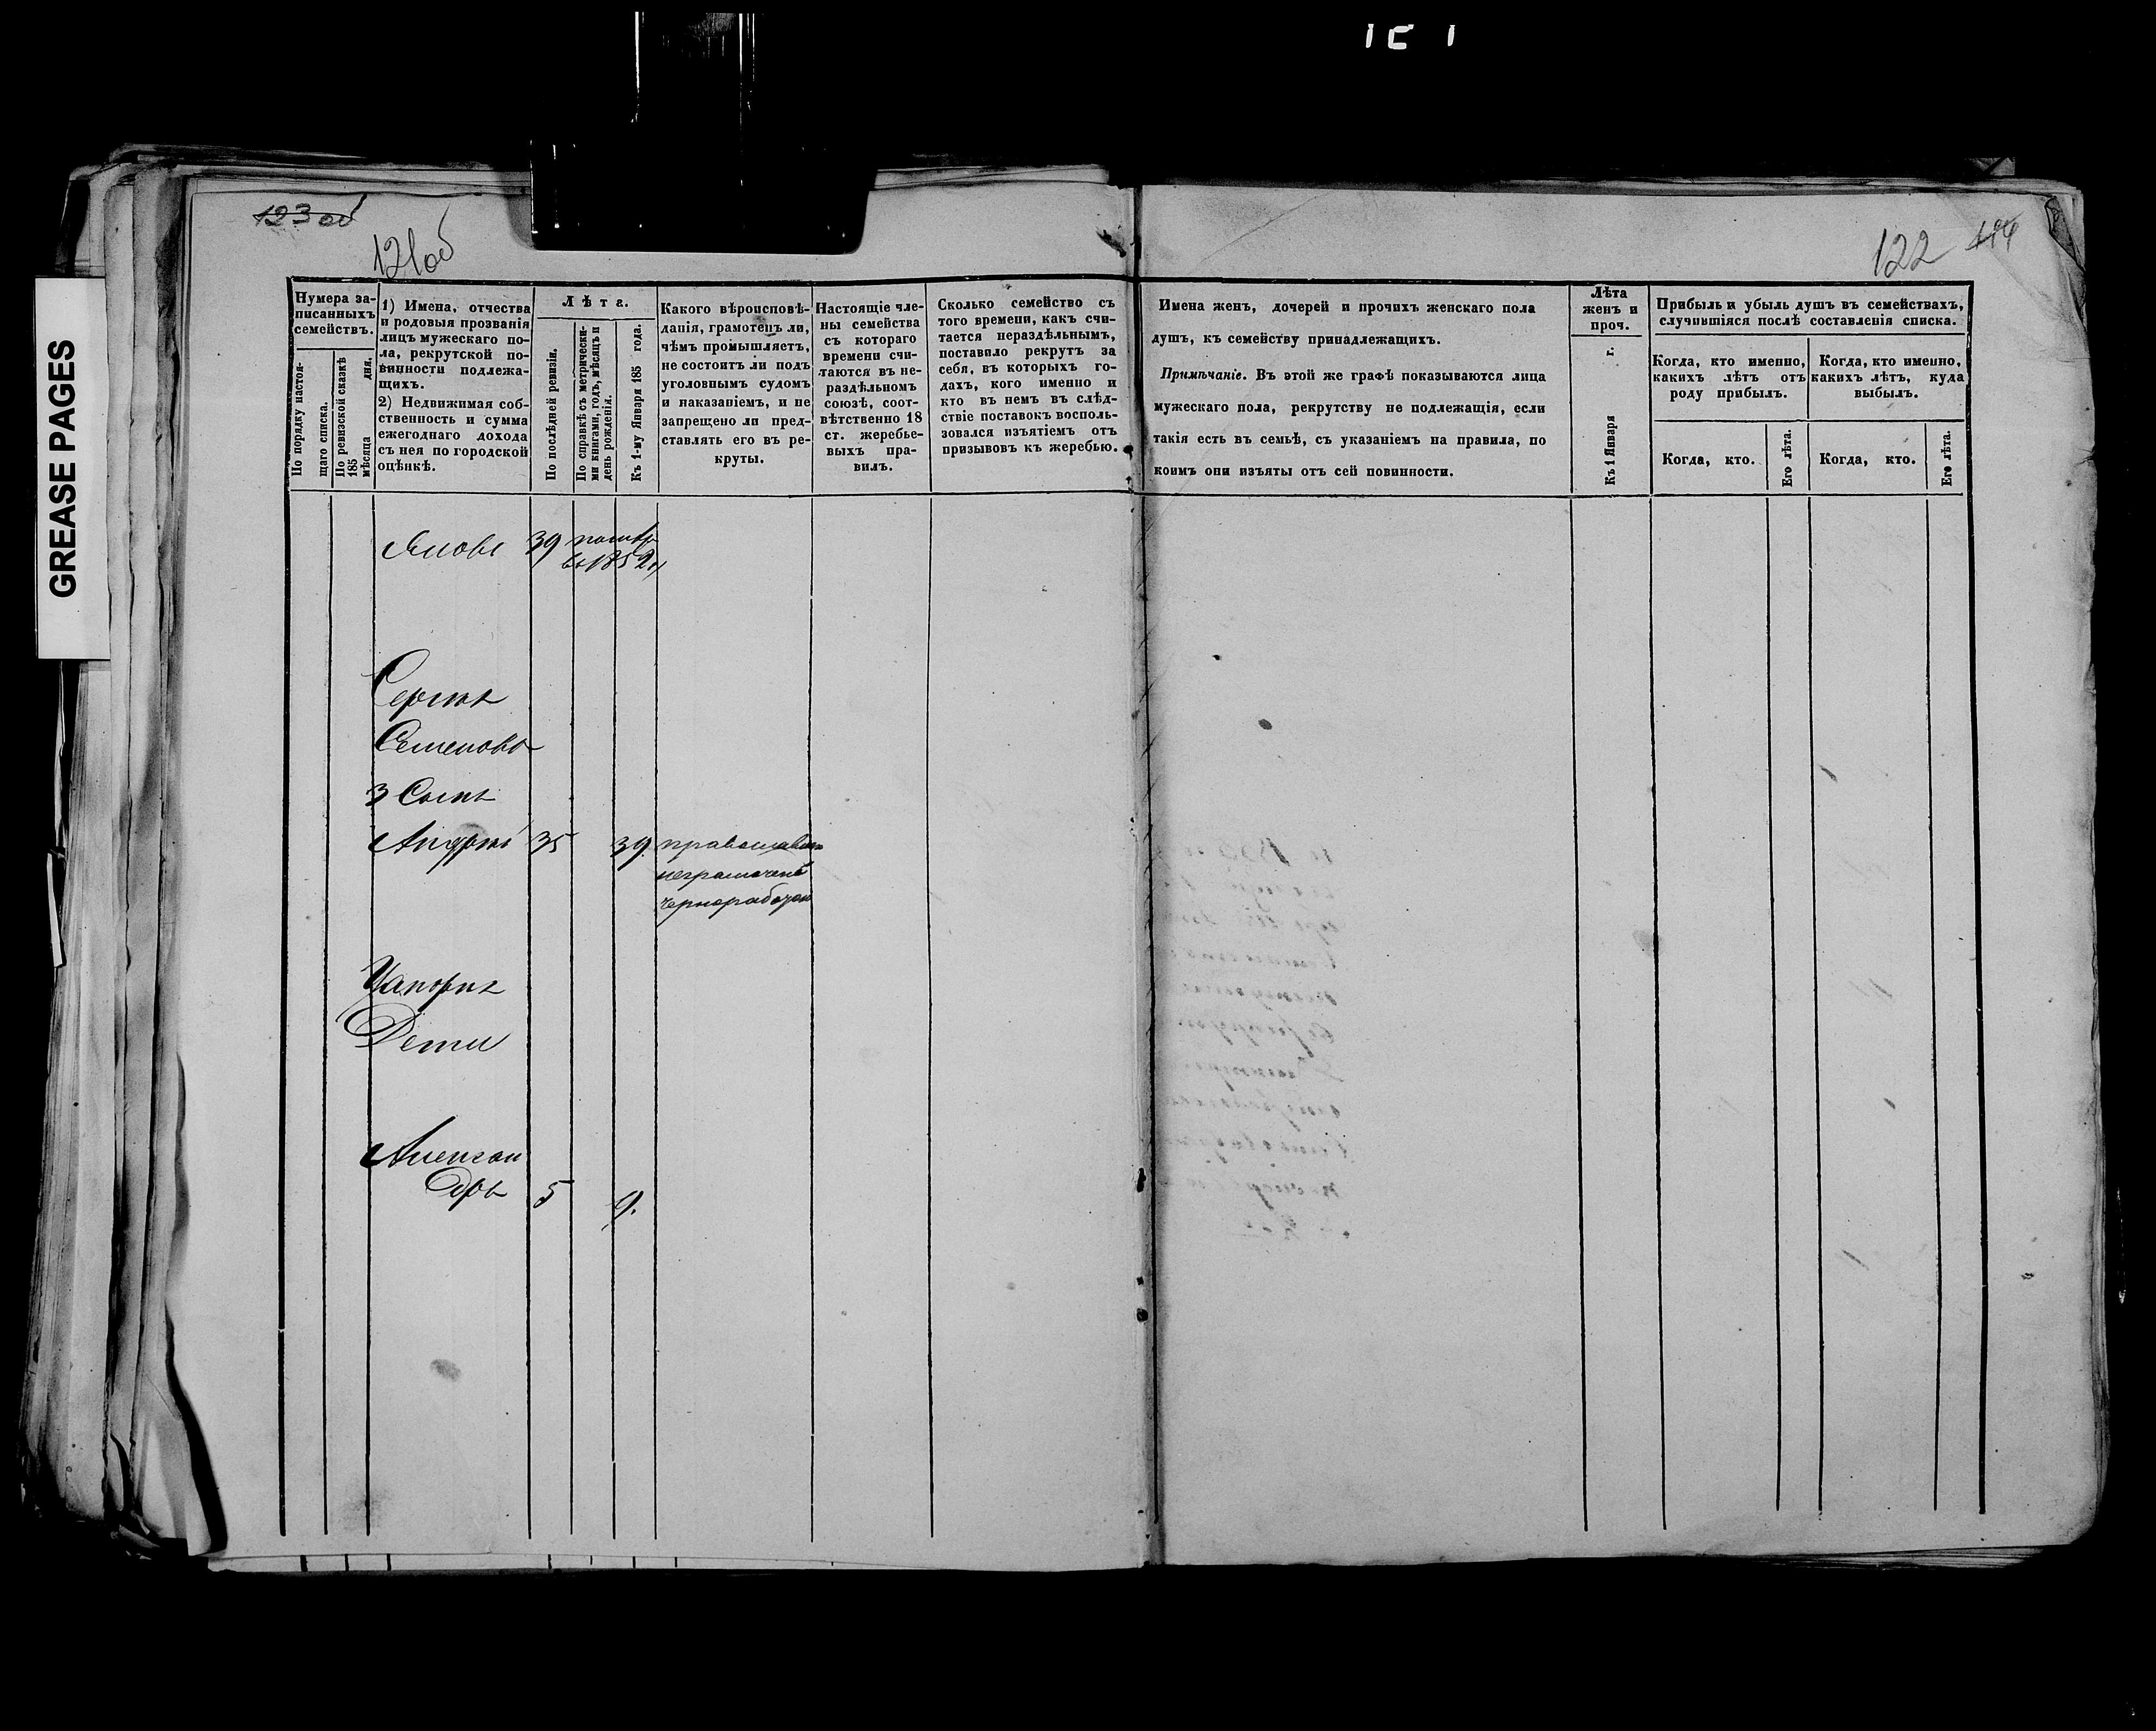 GREASE PAGES
123 об
121об
122
Нумера записанныхъ семействъ.
По порядку настоящаго списка.
По ревизской сказкѣ 185 мѣсяца дня.
1) Имена, отчества
и родовыя прозванія
лицъ мужескаго по-
ла, рекрутской по-
винности подлежа-
щихъ.
2) Недвижимая соб-
ственность и сумма
ежегоднаго дохода
съ нея по городской
оцѣнкѣ.
Лѣта.
По послѣдней ревизіи.
По справкѣ съ метрически-
ми книгами, годъ, мѣсяцъ и
день рожденія.
Къ 1-му Января 185 года.
Какого вѣроисповѣ-
данія, грамотенъ ли,
чѣмъ промышляетъ,
не состоитъ ли подъ
уголовнымъ судомъ
и наказаніемъ, и не
запрещено ли пред-
ставлять его въ ре-
круты.
Настоящіе чле-
ны семейства
съ котораго
времени счи-
таются въ не-
раздѣльномъ
союзѣ, соот-
вѣтственно 18
ст. жеребье-
выхъ пра-
вилъ.
Сколько семейство съ
того времени, какъ счи-
тается нераздѣльнымъ,
поставило рекрутъ за
себя, въ которыхъ го-
дахъ, кого именно и
кто въ немъ въ слѣд-
ствіе поставокъ восполь-
зовался изъятіемъ отъ
призывовъ къ жеребью.
Имена женъ, дочерей и прочихъ женскаго пола
душъ, къ семейству принадлежащихъ.
Примѣчаніе. Въ этой же графѣ показываются лица
мужескаго пола, рекрутству не подлежащія, если
такія есть въ семьѣ, съ указаніемъ на правила, по
коимъ они изъяты отъ сей повинности.
Лѣта
женъ и
проч.
Къ 1 Января г.
Прибыль и убыль душъ въ семействахъ,
случившіяся послѣ составленія списка.
Когда, кто именно,
какихъ лѣтъ отъ
роду прибылъ.
Когда, кто именно,
какихъ лѣтъ, куда
выбылъ.
Когда, кто.
Его лѣта.
Когда, кто.
Его лѣта.
Яковъ 39
въ 1852
Сергѣя
Семенова
3 Сынъ
Андрей 35 39. православн
неграмотенъ
чернорабочій
Дети
Александръ 5 9.